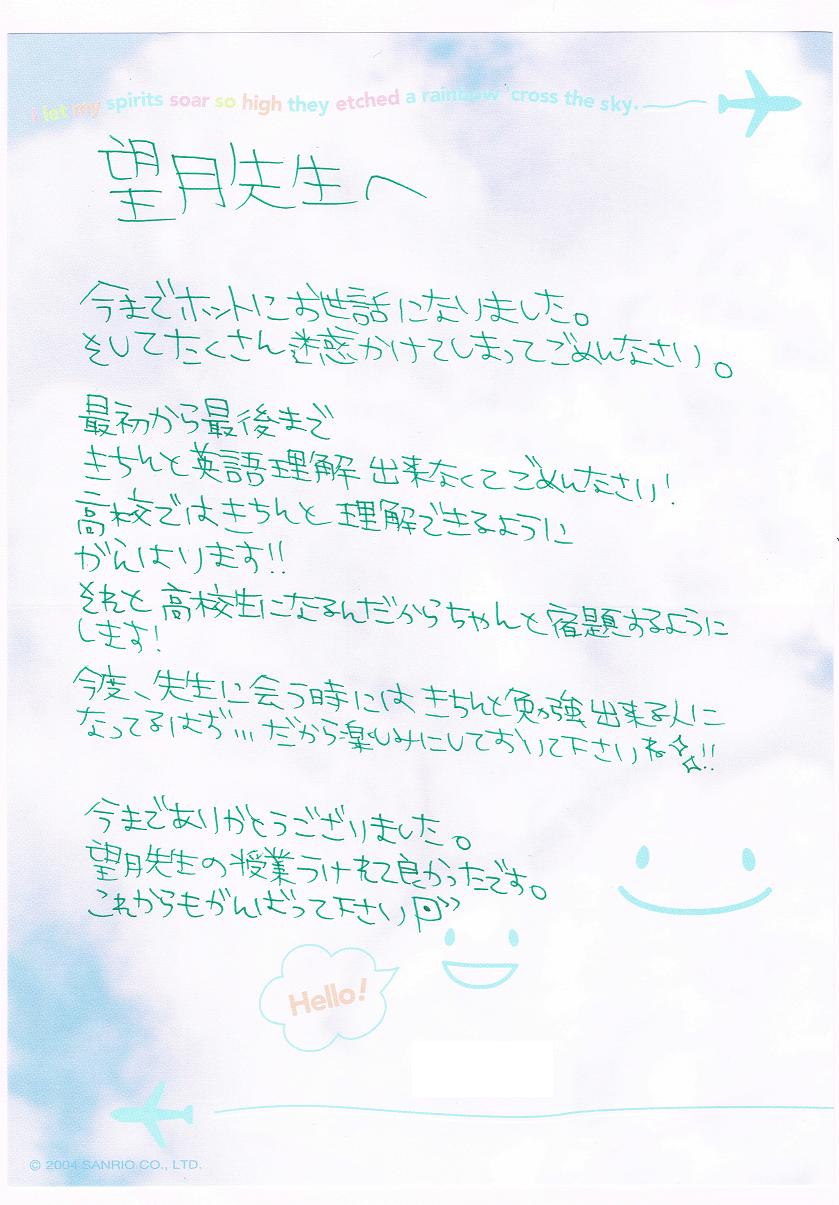 I let my spirits soar so high they etched a rainbow 'cross the sky.
望月先生へ
今までホントにお世話になりました。
そしてたくさん迷惑かけてしまってごめんなさい。
最初から最後まで
きちんと英語理解出来なくてごめんなさい!
高校ではきちんと理解できるように
がんばります!!
それと高校生になるんだからちゃんと宿題するように
します!
今度、先生に会う時にはきちんと勉強出来る人に
なってるはず… だから楽しみにしておいて下さいね☆☆!!
今までありがとうございました。
望月先生の授業うけれて良かったです。
これからもがんばって下さい
Hello!
© 2004 SANRIO CO., LTD.